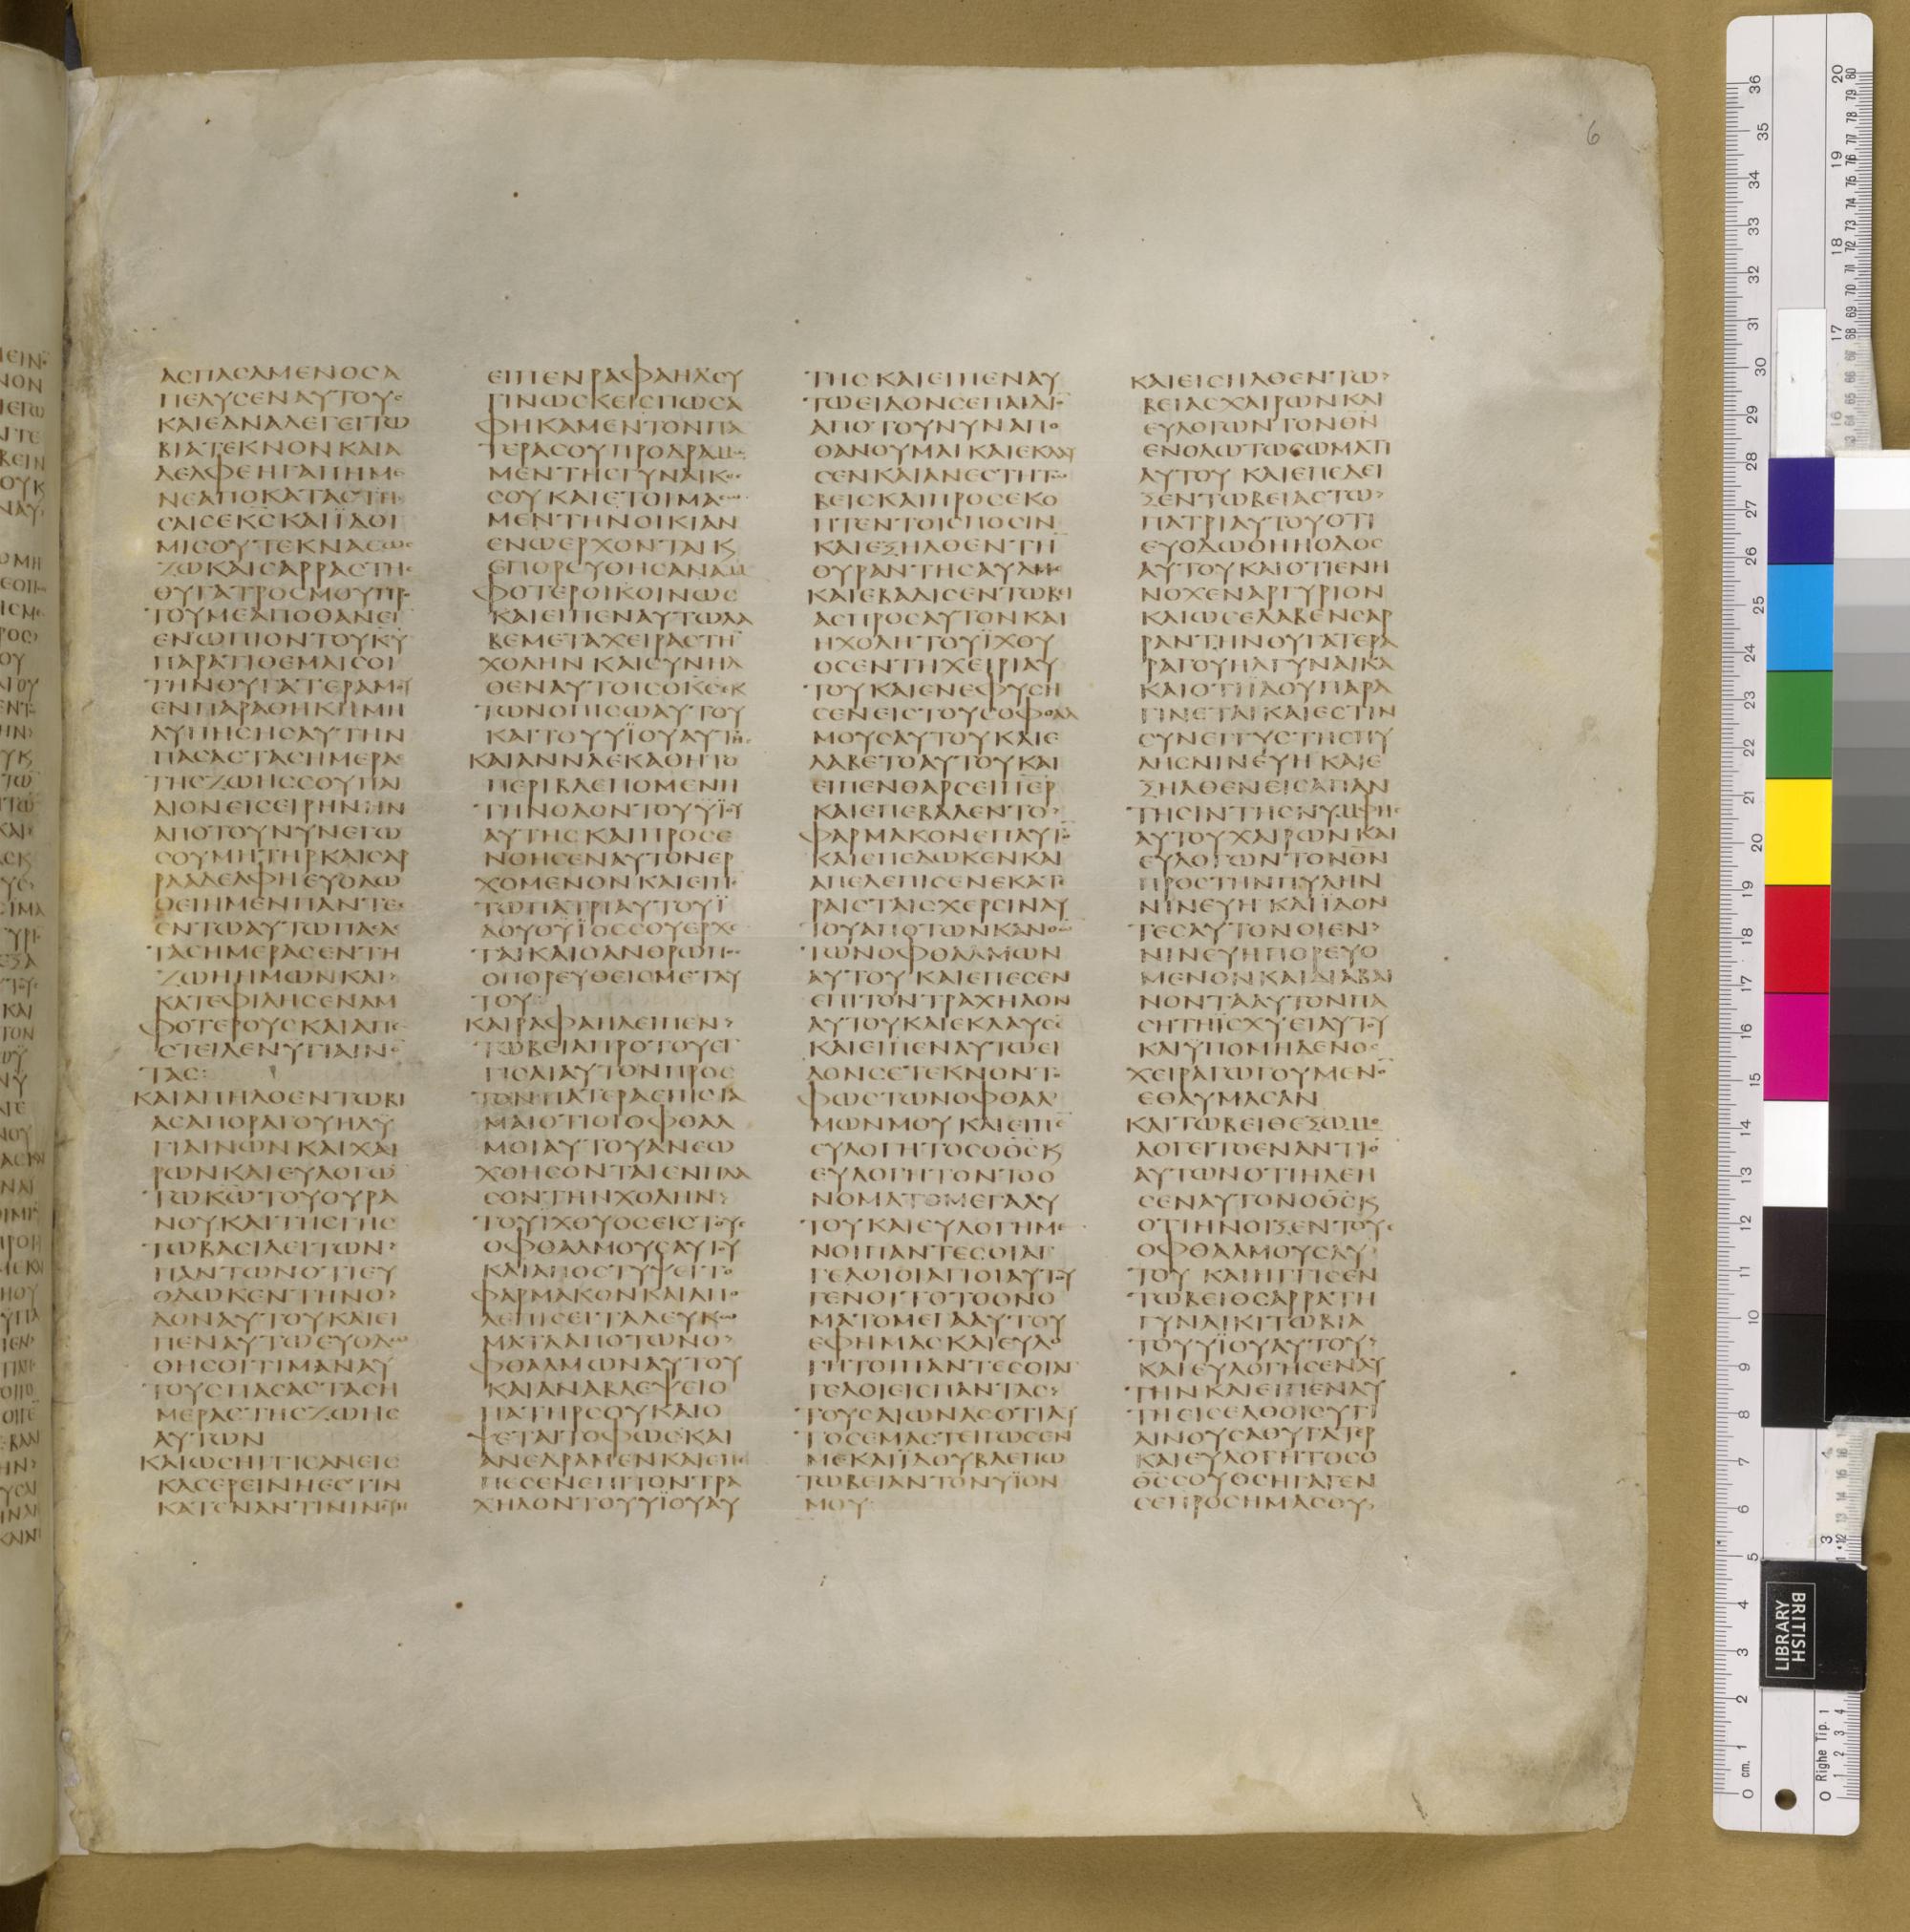 ΑΣΠΑΣΑΜΕΝΟΣΑ
ΠΕΛΥΣΕΝΑΥΤΟΥΣ
ΚΑΙΕΑΝΑΛΕΓΕΙΤΩ
ΒΙΑΤΕΚΝΟΝΚΑΙΑ
ΔΕΛΦΕΗΓΑΠΗΜΕ
ΝΕΑΠΟΚΑΤΑΣΤΗ
ΣΑΙΣΕΚ̅Σ̅ΚΑΙΪΔΟΙ
ΜΙΣΟΥΤΕΚΝΑΕΩΣ
ΖΩΚΑΙΣΑΡΡΑΣΤΗΣ
ΘΥΓΑΤΡΟΣΜΟΥΠΡΟ
ΤΟΥΜΕΑΠΟΘΑΝΕΙ̅
ΕΝΩΠΙΟΝΤΟΥΚ̅Υ̅
ΠΑΡΑΤΙΘΕΜΑΙΣΟΙ
ΤΗΝΘΥΓΑΤΕΡΑΜΟΥ
ΕΝΠΑΡΑΘΗΚΗΜΗ
ΛΥΠΗΣΗΣΑΥΤΗΝ
ΠΑΣΑΣΤΑΣΗΜΕΡΑΣ
ΤΗΣΖΩΗΣΣΟΥΠΑΙ
ΔΙΟΝΕΙΣΕΙΡΗΝΗΝ
ΑΠΟΤΟΥΝΥΝΕΓΩ
ΣΟΥΜΗΤΗΡΚΑΙΣΑΡ
ΡΑΑΔΕΛΦΗΕΥΟΔΩ
ΘΕΙΗΜΕΝΠΑΝΤΕΣ
ΕΝΤΩΑΥΤΩΠΑΣΑΣ
ΤΑΣΗΜΕΡΑΣΕΝΤΗ
ΖΩΗΗΜΩΝΚΑΙ›
ΚΑΤΕΦΙΛΗΣΕΝΑΜ
ΦΟΤΕΡΟΥΣΚΑΙΑΠΕ
ΣΤΕΙΛΕΝΥΓΙΑΙΝΟ̅
ΤΑΣ:
ΚΑΙΑΠΗΛΘΕΝΤΩΒΙ
ΑΣΑΠΟΡΑΓΟΥΗΛΥ
ΓΙΑΙΝΩΝΚΑΙΧΑΙ
ΡΩΝΚΑΙΕΥΛΟΓΩ̅
ΤΩΚ̅Ω̅ΤΟΥΟΥΡΑ
ΝΟΥΚΑΙΤΗΣΓΗΣ
ΤΩΒΑΣΙΛΕΙΤΩΝ›
ΠΑΝΤΩΝΟΤΙΕΥ
ΟΔΩΚΕΝΤΗΝΟ›
ΔΟΝΑΥΤΟΥΚΑΙΕΙ
ΠΕΝΑΥΤΩΕΥΟΔΩ
ΘΗΣΟΙΤΙΜΑΝΑΥ
ΤΟΥΣΠΑΣΑΣΤΑΣΗ
ΜΕΡΑΣΤΗΣΖΩΗΣ
ΑΥΤΩΝ
ΚΑΙΩΣΗΓΓΙΣΑΝΕΙΣ
ΚΑΣΕΡΕΙΝΗΕΣΤΙΝ
ΚΑΤΕΝΑΝΤΙΝΙΝΕΥΗ
ΕΙΠΕΝΡΑΦΑΗΛΣΥ
ΓΙΝΩΣΚΕΙΣΠΩΣΑ
ΦΗΚΑΜΕΝΤΟΝΠΑ
ΤΕΡΑΣΟΥΠΡΟΔΡΑΜΩ
ΜΕΝΤΗΣΓΥΝΑΙΚΟΣ
ΣΟΥΚΑΙΕΤΟΙΜΑΣΩ
ΜΕΝΤΗΝΟΙΚΙΑΝ
ΕΝΩΕΡΧΟΝΤΑΙΚΑΙ
ΕΠΟΡΕΥΘΗΣΑΝΑΜ
ΦΟΤΕΡΟΙΚΟΙΝΩΣ
ΚΑΙΕΙΠΕΝΑΥΤΩΛΑ
ΒΕΜΕΤΑΧΕΙΡΑΣΤΗ̅
ΧΟΛΗΝΚΑΙΣΥΝΗΛ
ΘΕΝΑΥΤΟΙΣΟΚ̅Σ̅ΕΚ
ΤΩΝΟΠΙΣΩΑΥΤΟΥ
ΚΑΙΤΟΥΥΪΟΥΑΥΤΗΣ
ΚΑΙΑΝΝΑΕΚΑΘΗΤΟ
ΠΕΡΙΒΛΕΠΟΜΕΝΗ
ΤΗΝΟΔΟΝΤΟΥΥΪΟΥ
ΑΥΤΗΣΚΑΙΠΡΟΣΕ
ΝΟΗΣΕΝΑΥΤΟΝΕΡ
ΧΟΜΕΝΟΝΚΑΙΕΙΠΕ̅
ΤΩΠΑΤΡΙΑΥΤΟΥΪ
ΔΟΥΟΥΪΟΣΣΟΥΕΡΧΕ
ΤΑΙΚΑΙΟΑΝΘΡΩΠΟΣ
ΟΠΟΡΕΥΘΕΙΣΜΕΤΑΥ
ΤΟΥ
ΚΑΙΡΑΦΑΗΛΕΙΠΕΝ›
ΤΩΒΕΙΑΠΡΟΤΟΥΕΓ
ΓΙΣΑΙΑΥΤΟΝΠΡΟΣ
ΤΟΝΠΑΤΕΡΑΕΠΙΣΤΑ
ΜΑΙΟΤΙΟΙΟΦΘΑΛ
ΜΟΙΑΥΤΟΥΑΝΕΩ
ΧΘΗΣΟΝΤΑΙΕΝΠΛΑ
ΣΟΝΤΗΝΧΟΛΗΝ›
ΤΟΥΪΧΘΥΟΣΕΙΣΤΟΥΣ
ΟΦΘΑΛΜΟΥΣΑΥΤΟΥ
ΚΑΙΑΠΟΣΤΥΨΕΙΤΟ
ΦΑΡΜΑΚΟΝΚΑΙΑΠΟ
ΛΕΠΙΣΕΙΤΑΛΕΥΚΩ
ΜΑΤΑΑΠΟΤΩΝΟ›
ΦΘΑΛΜΩΝΑΥΤΟΥ
ΚΑΙΑΝΑΒΛΕΨΕΙΟ
ΠΑΤΗΡΣΟΥΚΑΙΟ
ΨΕΤΑΙΤΟΦΩΣΚΑΙ
ΑΝΕΔΡΑΜΕΝΚΑΙΕΠΕ
ΠΕΣΕΝΕΠΙΤΟΝΤΡΑ
ΧΗΛΟΝΤΟΥΥΪΟΥΑΥ
ΤΗΣΚΑΙΕΙΠΕΝΑΥ
ΤΩΕΙΔΟΝΣΕΠΑΙΔΙΟ̅
ΑΠΟΤΟΥΝΥΝΑΠΟ
ΘΑΝΟΥΜΑΙΚΑΙΕΚΛΑΥ
ΣΕΝΚΑΙΑΝΕΣΤΗΤΩ
ΒΕΙΣΚΑΙΠΡΟΣΕΚΟ
ΠΤΕΝΤΟΙΣΠΟΣΙΝ
ΚΑΙΕΞΗΛΘΕΝΤΗ̅
ΘΥΡΑΝΤΗΣΑΥΛΗΣ
ΚΑΙΕΒΑΔΙΣΕΝΤΩΒΙ
ΑΣΠΡΟΣΑΥΤΟΝΚΑΙ
ΗΧΟΛΗΤΟΥΪΧΘΥ
ΟΣΕΝΤΗΧΕΙΡΙΑΥ
ΤΟΥΚΑΙΕΝΕΦΥΣΗ
ΣΕΝΕΙΣΤΟΥΣΟΦΘΑΛ
ΜΟΥΣΑΥΤΟΥΚΑΙΕ
ΛΑΒΕΤΟΑΥΤΟΥΚΑΙ
ΕΙΠΕΝΘΑΡΣΕΙΠΑΤΕΡ
ΚΑΙΕΠΕΒΑΛΕΝΤΟ›
ΦΑΡΜΑΚΟΝΕΠΑΥΤΟ̅
ΚΑΙΕΠΕΔΩΚΕΝΚΑΙ
ΑΠΕΛΕΠΙΣΕΝΕΚΑΤΕ
ΡΑΙΣΤΑΙΣΧΕΡΣΙΝΑΥ
ΤΟΥΑΠΟΤΩΝΚΑΝΘΩ̅
ΤΩΝΟΦΘΑΛΜΩΝ
ΑΥΤΟΥΚΑΙΕΠΕΣΕΝ
ΕΠΙΤΟΝΤΡΑΧΗΛΟΝ
ΑΥΤΟΥΚΑΙΕΚΛΑΥΣΕ̅
ΚΑΙΕΙΠΕΝΑΥΤΩΕΙ
ΔΟΝΣΕΤΕΚΝΟΝΤΟ
ΦΩΣΤΩΝΟΦΘΑΛ
ΜΩΝΜΟΥΚΑΙΕΙΠΕ̅
ΕΥΛΟΓΗΤΟΣΟΘ̅Σ̅ΚΑΙ
ΕΥΛΟΓΗΤΟΝΤΟΟ
ΝΟΜΑΤΟΜΕΓΑΑΥ
ΤΟΥΚΑΙΕΥΛΟΓΗΜΕ
ΝΟΙΠΑΝΤΕΣΟΙΑΓ
ΓΕΛΟΙΟΙΑΓΙΟΙΑΥΤΟΥ
ΓΕΝΟΙΤΟΤΟΟΝΟ
ΜΑΤΟΜΕΓΑΑΥΤΟΥ
ΕΦΗΜΑΣΚΑΙΕΥΛΟ
ΓΗΤΟΙΠΑΝΤΕΣΟΙΑΓ
ΓΕΛΟΙΕΙΣΠΑΝΤΑΣ›
ΤΟΥΣΑΙΩΝΑΣΟΤΙΑΥ
ΤΟΣΕΜΑΣΤΕΙΓΩΣΕΝ
ΜΕΚΑΙΪΔΟΥΒΛΕΠΩ
ΤΩΒΕΙΑΝΤΟΝΥΪΟΝ
ΜΟΥ
ΚΑΙΕΙΣΗΛΘΕΝΤΩ›
ΒΕΙΑΣΧΑΙΡΩΝΚΑΙ
ΕΥΛΟΓΩΝΤΟΝΘ̅Ν̅
ΕΝΟΛΩΤΩΣΩΜΑΤΙ
ΑΥΤΟΥΚΑΙΕΠΕΔΕΙ
ΞΕΝΤΩΒΕΙΑΣΤΩ›
ΠΑΤΡΙΑΥΤΟΥΟΤΙ
ΕΥΟΔΩΘΗΗΟΔΟΣ
ΑΥΤΟΥΚΑΙΟΤΙΕΝΗ
ΝΟΧΕΝΑΡΓΥΡΙΟΝ
ΚΑΙΩΣΕΛΑΒΕΝΣΑΡ
ΡΑΝΤΗΝΘΥΓΑΤΕΡΑ
ΡΑΓΟΥΗΛΓΥΝΑΙΚΑ
ΚΑΙΟΤΙΪΔΟΥΠΑΡΑ
ΓΙΝΕΤΑΙΚΑΙΕΣΤΙΝ
ΣΥΝΕΓΓΥΣΤΗΣΠΥ
ΛΗΣΝΙΝΕΥΗΚΑΙΕ
ΞΗΛΘΕΝΕΙΣΑΠΑΝ
ΤΗΣΙΝΤΗΣΝΥΜΦΗΣ
ΑΥΤΟΥΧΑΙΡΩΝΚΑΙ
ΕΥΛΟΓΩΝΤΟΝΘ̅Ν̅
ΠΡΟΣΤΗΝΠΥΛΗΝ
ΝΙΝΕΥΗΚΑΙΪΔΟΝ
ΤΕΣΑΥΤΟΝΟΙΕΝ›
ΝΙΝΕΥΗΠΟΡΕΥΟ
ΜΕΝΟΝΚΑΙΔΙΑΒΑΙ
ΝΟΝΤΑΑΥΤΟΝΠΑ
ΣΗΤΗΪΣΧΥΕΙΑΥΤΟΥ
ΚΑΙΥΠΟΜΗΔΕΝΟΣ
ΧΕΙΡΑΓΩΓΟΥΜΕΝΟ̅
ΕΘΑΥΜΑΣΑΝ
ΚΑΙΤΩΒΕΙΘΕΞΩΜΟ
ΛΟΓΕΙΤΟΕΝΑΝΤΙΟ̅
ΑΥΤΩΝΟΤΙΗΛΕΗ
ΣΕΝΑΥΤΟΝΟΘ̅Σ̅ΚΑΙ
ΟΤΙΗΝΟΙΞΕΝΤΟΥΣ
ΟΦΘΑΛΜΟΥΣΑΥ
ΤΟΥΚΑΙΗΓΓΙΣΕΝ
ΤΩΒΕΙΘΣΑΡΡΑΤΗ
ΓΥΝΑΙΚΙΤΩΒΙΑ
ΤΟΥΥΪΟΥΑΥΤΟΥ›
ΚΑΙΕΥΛΟΓΗΣΕΝΑΥ
ΤΗΝΚΑΙΕΙΠΕΝΑΥ
ΤΗΕΙΣΕΛΘΟΙΣΥΓΙ
ΑΙΝΟΥΣΑΘΥΓΑΤΕΡ
ΚΑΙΕΥΛΟΓΗΤΟΣΟ
Θ̅Σ̅ΣΟΥΟΣΗΓΑΓΕΝ
ΣΕΠΡΟΣΗΜΑΣΟΥ›
6
BRITISH
LIBRARY
0 Righe Tip. 1
0 cm. 1